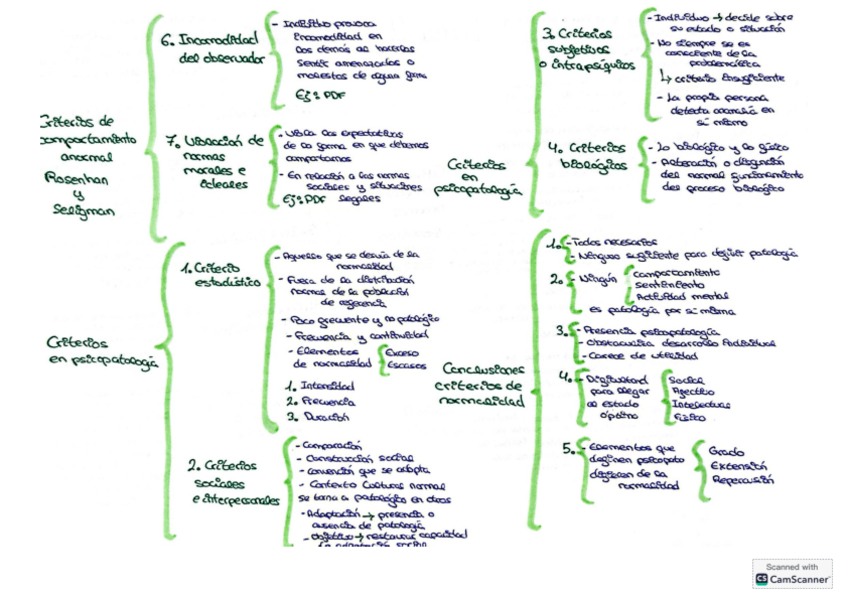 Criterios de
comportamiento
anormal
Rosenhan
y
Seligman
6. Incomodidad
del observador
- Individuo provoca
incomodidad en
los demás al hacerlos
sentir amenazados o
molestos de alguna forma
Ej: PDF
7. Violación de
normas
morales e
ideales
- Viola las expectativas
de la forma en que debemos
comportarnos
- En relación a las normas
sociales y situaciones
legales
Ej: PDF
Criterios
en psicopatología
1. Criterio
estadístico
- Aquello que se desvía de la
normalidad
- Fuera de la distribución
normal de la población
de referencia
- Poco frecuente y no patológico
- Frecuencia y continuidad
- Elementos
de normalidad
Exceso
Escasos
1. Intensidad
2. Frecuencia
3. Duración
2. Criterios
sociales
e interpersonales
- Comparación
- Construcción social
- Convención que se adopta
- Contexto cultural normal
se torna a patológico en otros
- Adaptación → presencia o
ausencia de patología
- Objetivo → restaurar capacidad
Criterios
en
psicopatología
3. Criterios
subjetivos
o intrapsíquicos
- Individuo → decide sobre
su estado o situación
- No siempre se es
consciente de la
problemática
↳ criterio insuficiente
- La propia persona
detecta anomalía en
sí mismo
4. Criterios
biológicos
- Lo biológico y lo físico
- Alteración o disfunción
del normal funcionamiento
del proceso biológico
Conclusiones
criterios de
normalidad
1. - Todos necesarios
- Ninguno suficiente para definir patología
2. - Ningún
comportamiento
sentimiento
Actividad mental
es patología por sí misma
3. - Presencia psicopatología
- obstaculiza desarrollo individual
- Carece de utilidad
4. - Dificultad
para llegar
al estado
óptimo
Social
Afectivo
Intelectual
Físico
5. - Elementos que
definen psicopato
difieren de la
normalidad
Grado
Extensión
Repercusión
Scanned with
CS CamScanner